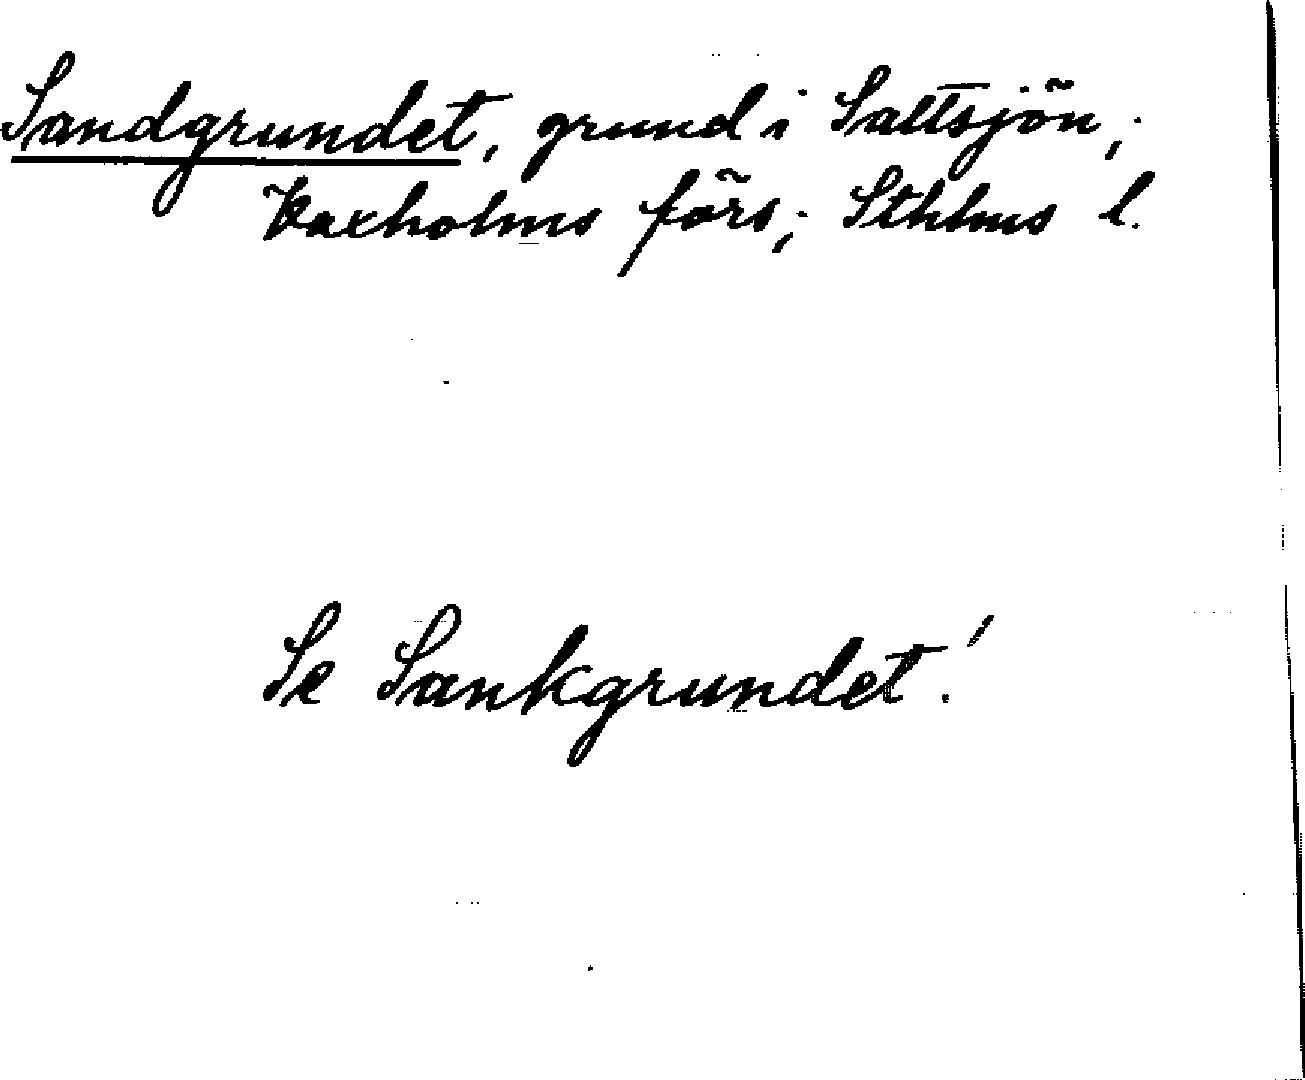 Sandgrundet, grund i Saltsjön;
Vaxholms förs; Sthlms l.
Se Sankgrundet!